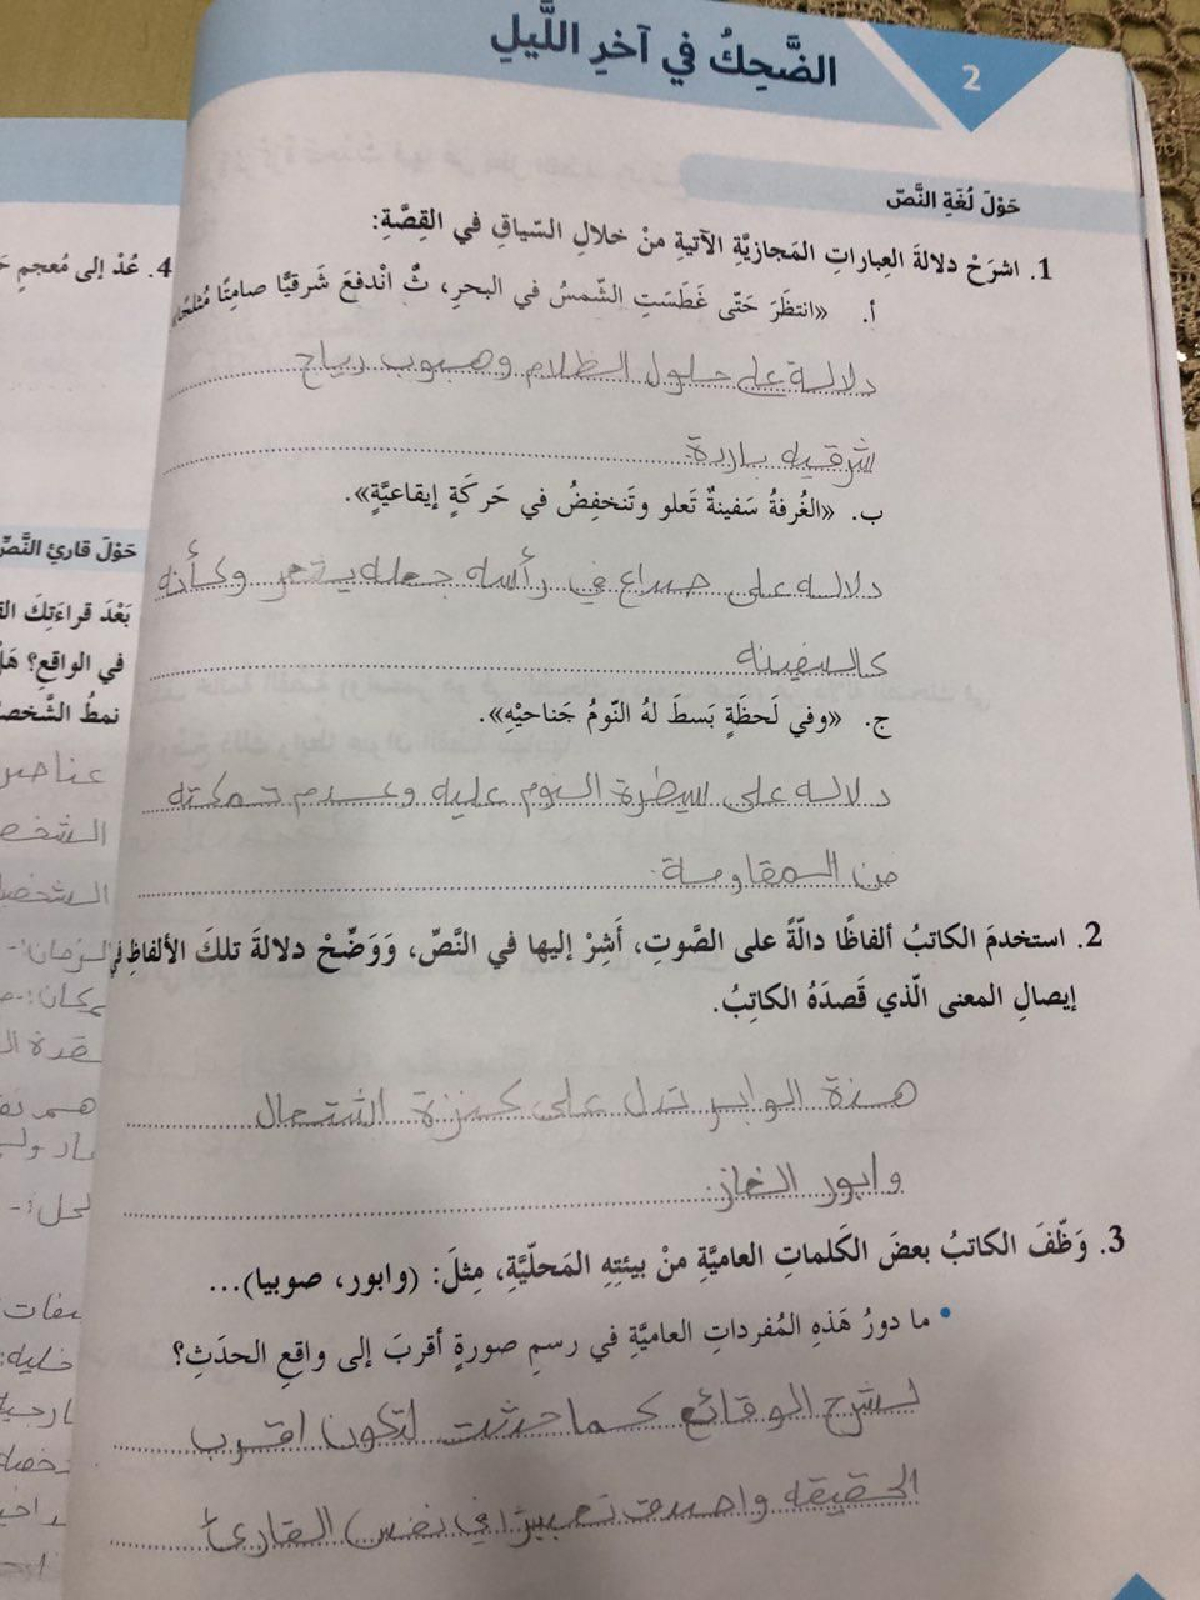 2
الضَّحِكُ في آخرِ اللَّيلِ
حَوْلَ لُغَةِ النَّصّ
1. اشرَحْ دلالةَ العِباراتِ المَجازيَّةِ الآتيةِ منْ خلالِ السّياقِ في القِصَّةِ:
أ. «انتظَرَ حَتّى غَطَسَتِ الشّمسُ في البحرِ، ثمَّ اْندفعَ شَرقيًّا صامِتًا
دلالة على حلول الظلام وهبوب رياح
شرقيه باردة.
ب. «الغُرفةُ سَفينةٌ تَعلو وتَنخفِضُ في حَركَةٍ إيقاعيَّةٍ».
دلاله على صراع في رأسه جعله وكأنه
كالسفينه
ج. «وفي لَحظَةٍ بَسطَ لهُ النّومُ جَناحيْهِ».
دلاله على سيطرة النوم عليه وعدم تمكنه
من المقاومة.
2. استخدمَ الكاتبُ ألفاظًا دالّةً على الصَّوتِ، أَشِرْ إليها في النَّصّ، وَوَضّحْ دلالةَ تلكَ الألفاظِ في
إيصالِ المعنى الّذي قَصدَهُ الكاتِبُ.
تدل على اشتعال
وابور الغاز.
3. وَظّفَ الكاتبُ بعضَ الكَلماتِ العاميَّةِ منْ بيئتِهِ المَحلّيَّةِ، مِثلَ: (وابور، صوبيا)...
• ما دورُ هَذهِ المُفرداتِ العاميَّةِ في رسمِ صورةٍ أقربَ إلى واقعِ الحدَثِ؟
لشرح الوقائع كما حدثت لتكون اقرب
الحقيقه واصدق تعبيرًا في نفس القارئ
4. عُدْ إلى مُعجمٍ
حَوْلَ قارئِ النَّصّ
بَعْدَ قراءَتِكَ
في الواقعِ؟
نمطُ
عناصر